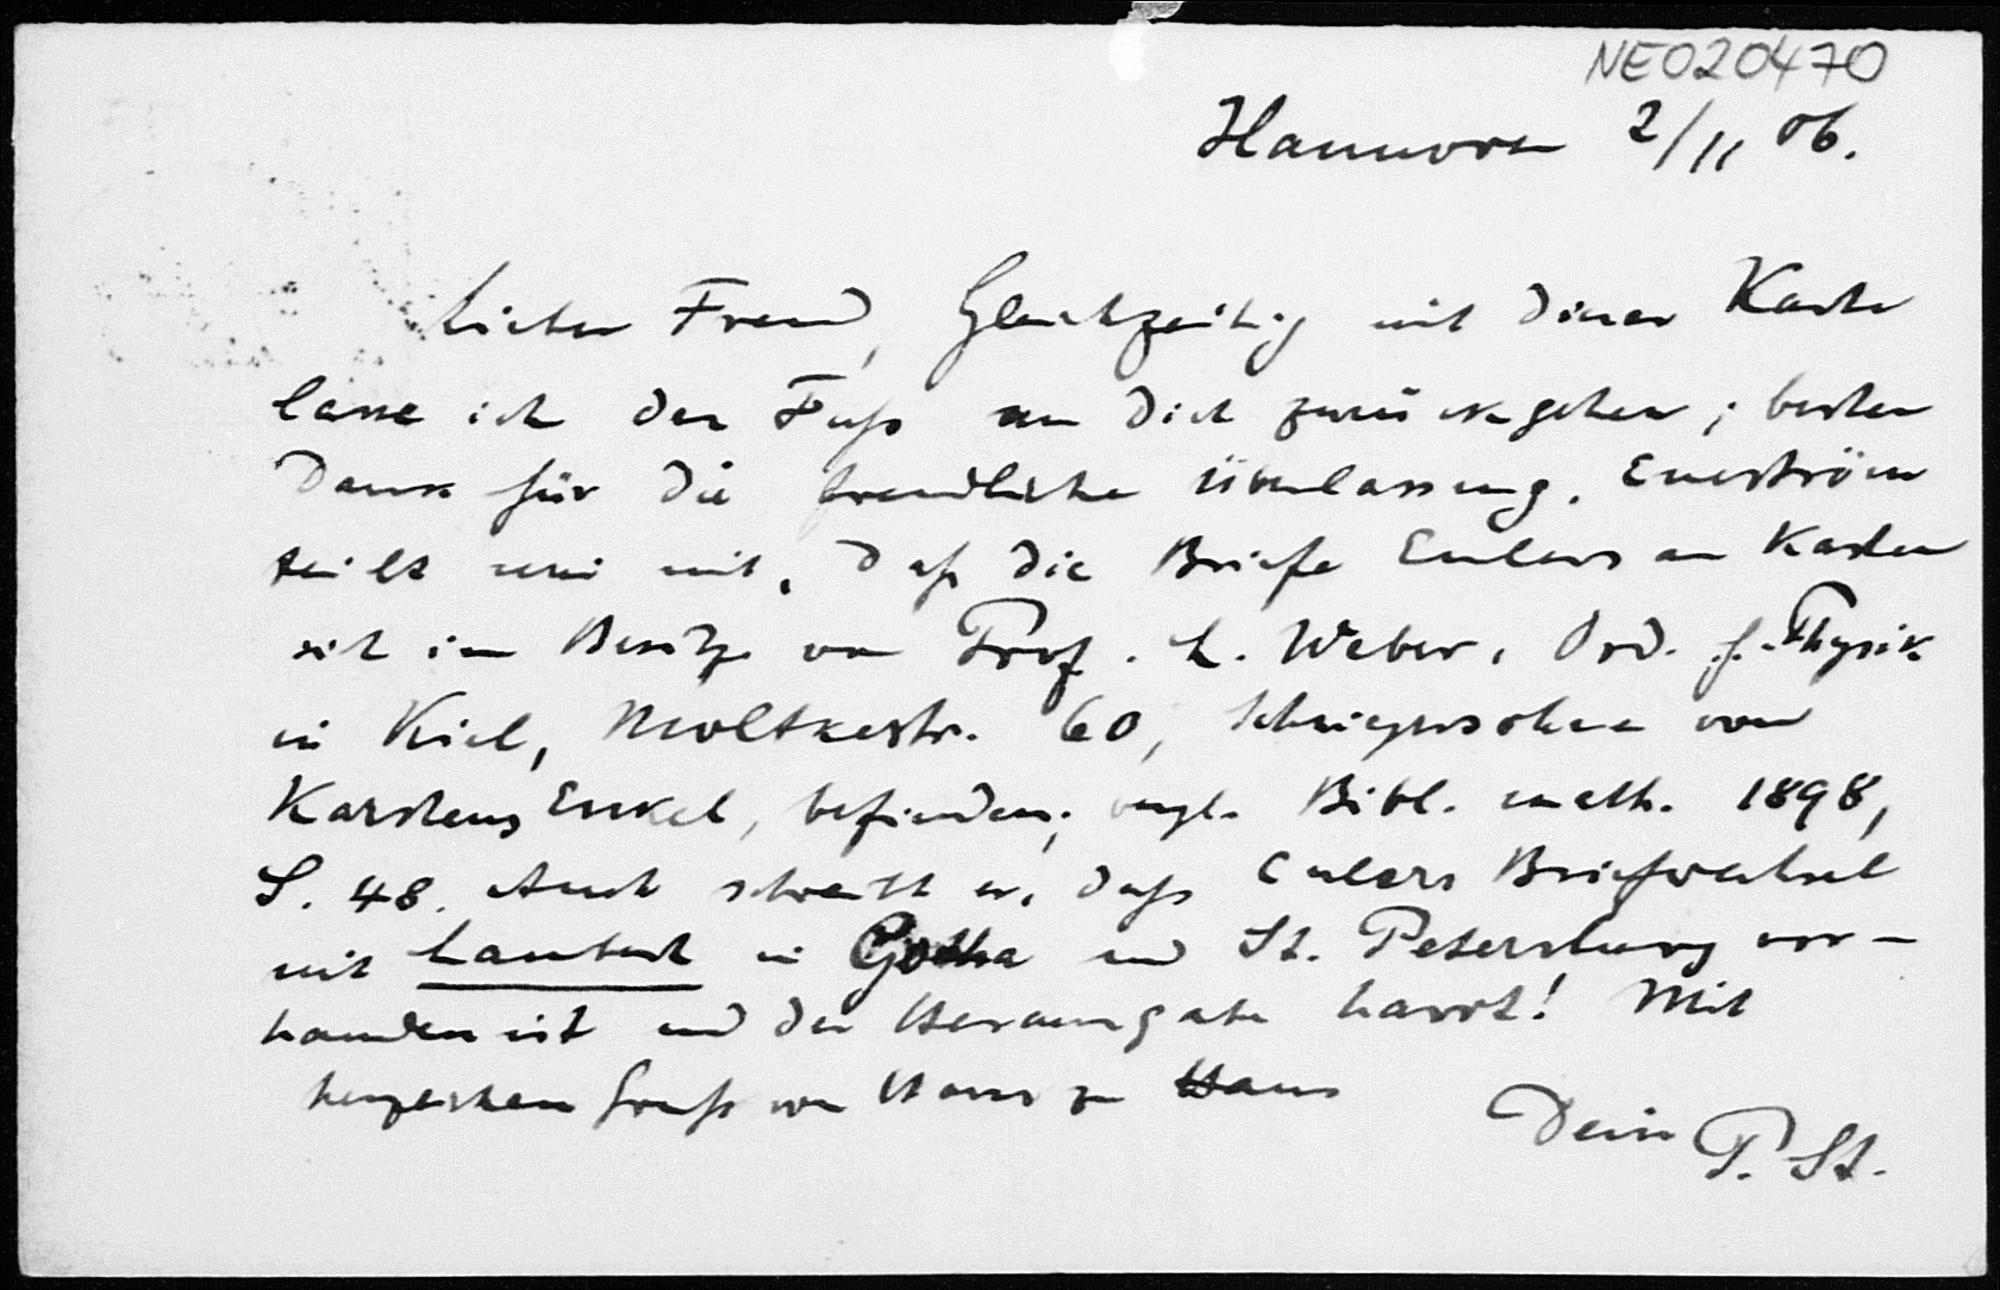 NE020470
Hannover 2/11 06.
Lieber Freund, Gleichzeitig mit dieser Karte
lasse ich den Fuß an dich zurückgehen; besten
Dank für die freundliche Überlassung. Eneström
teilt mir mit, daß die Briefe Eulers an Karsten
sich im Besitze von Prof. L. Weber, Ord. f. Physik
in Kiel, Moltkestr. 60, Schwiegersohn von
Karstens Enkel, befinden; vergl. Bibl. math. 1898,
S. 48. Auch schreibt er, daß Eulers Briefwechsel
mit Lambert in Gotha und St. Petersburg vor-
handen ist und der Herausgabe harrt! Mit
herzlichem Gruß von Haus zu Haus
Dein P. St.